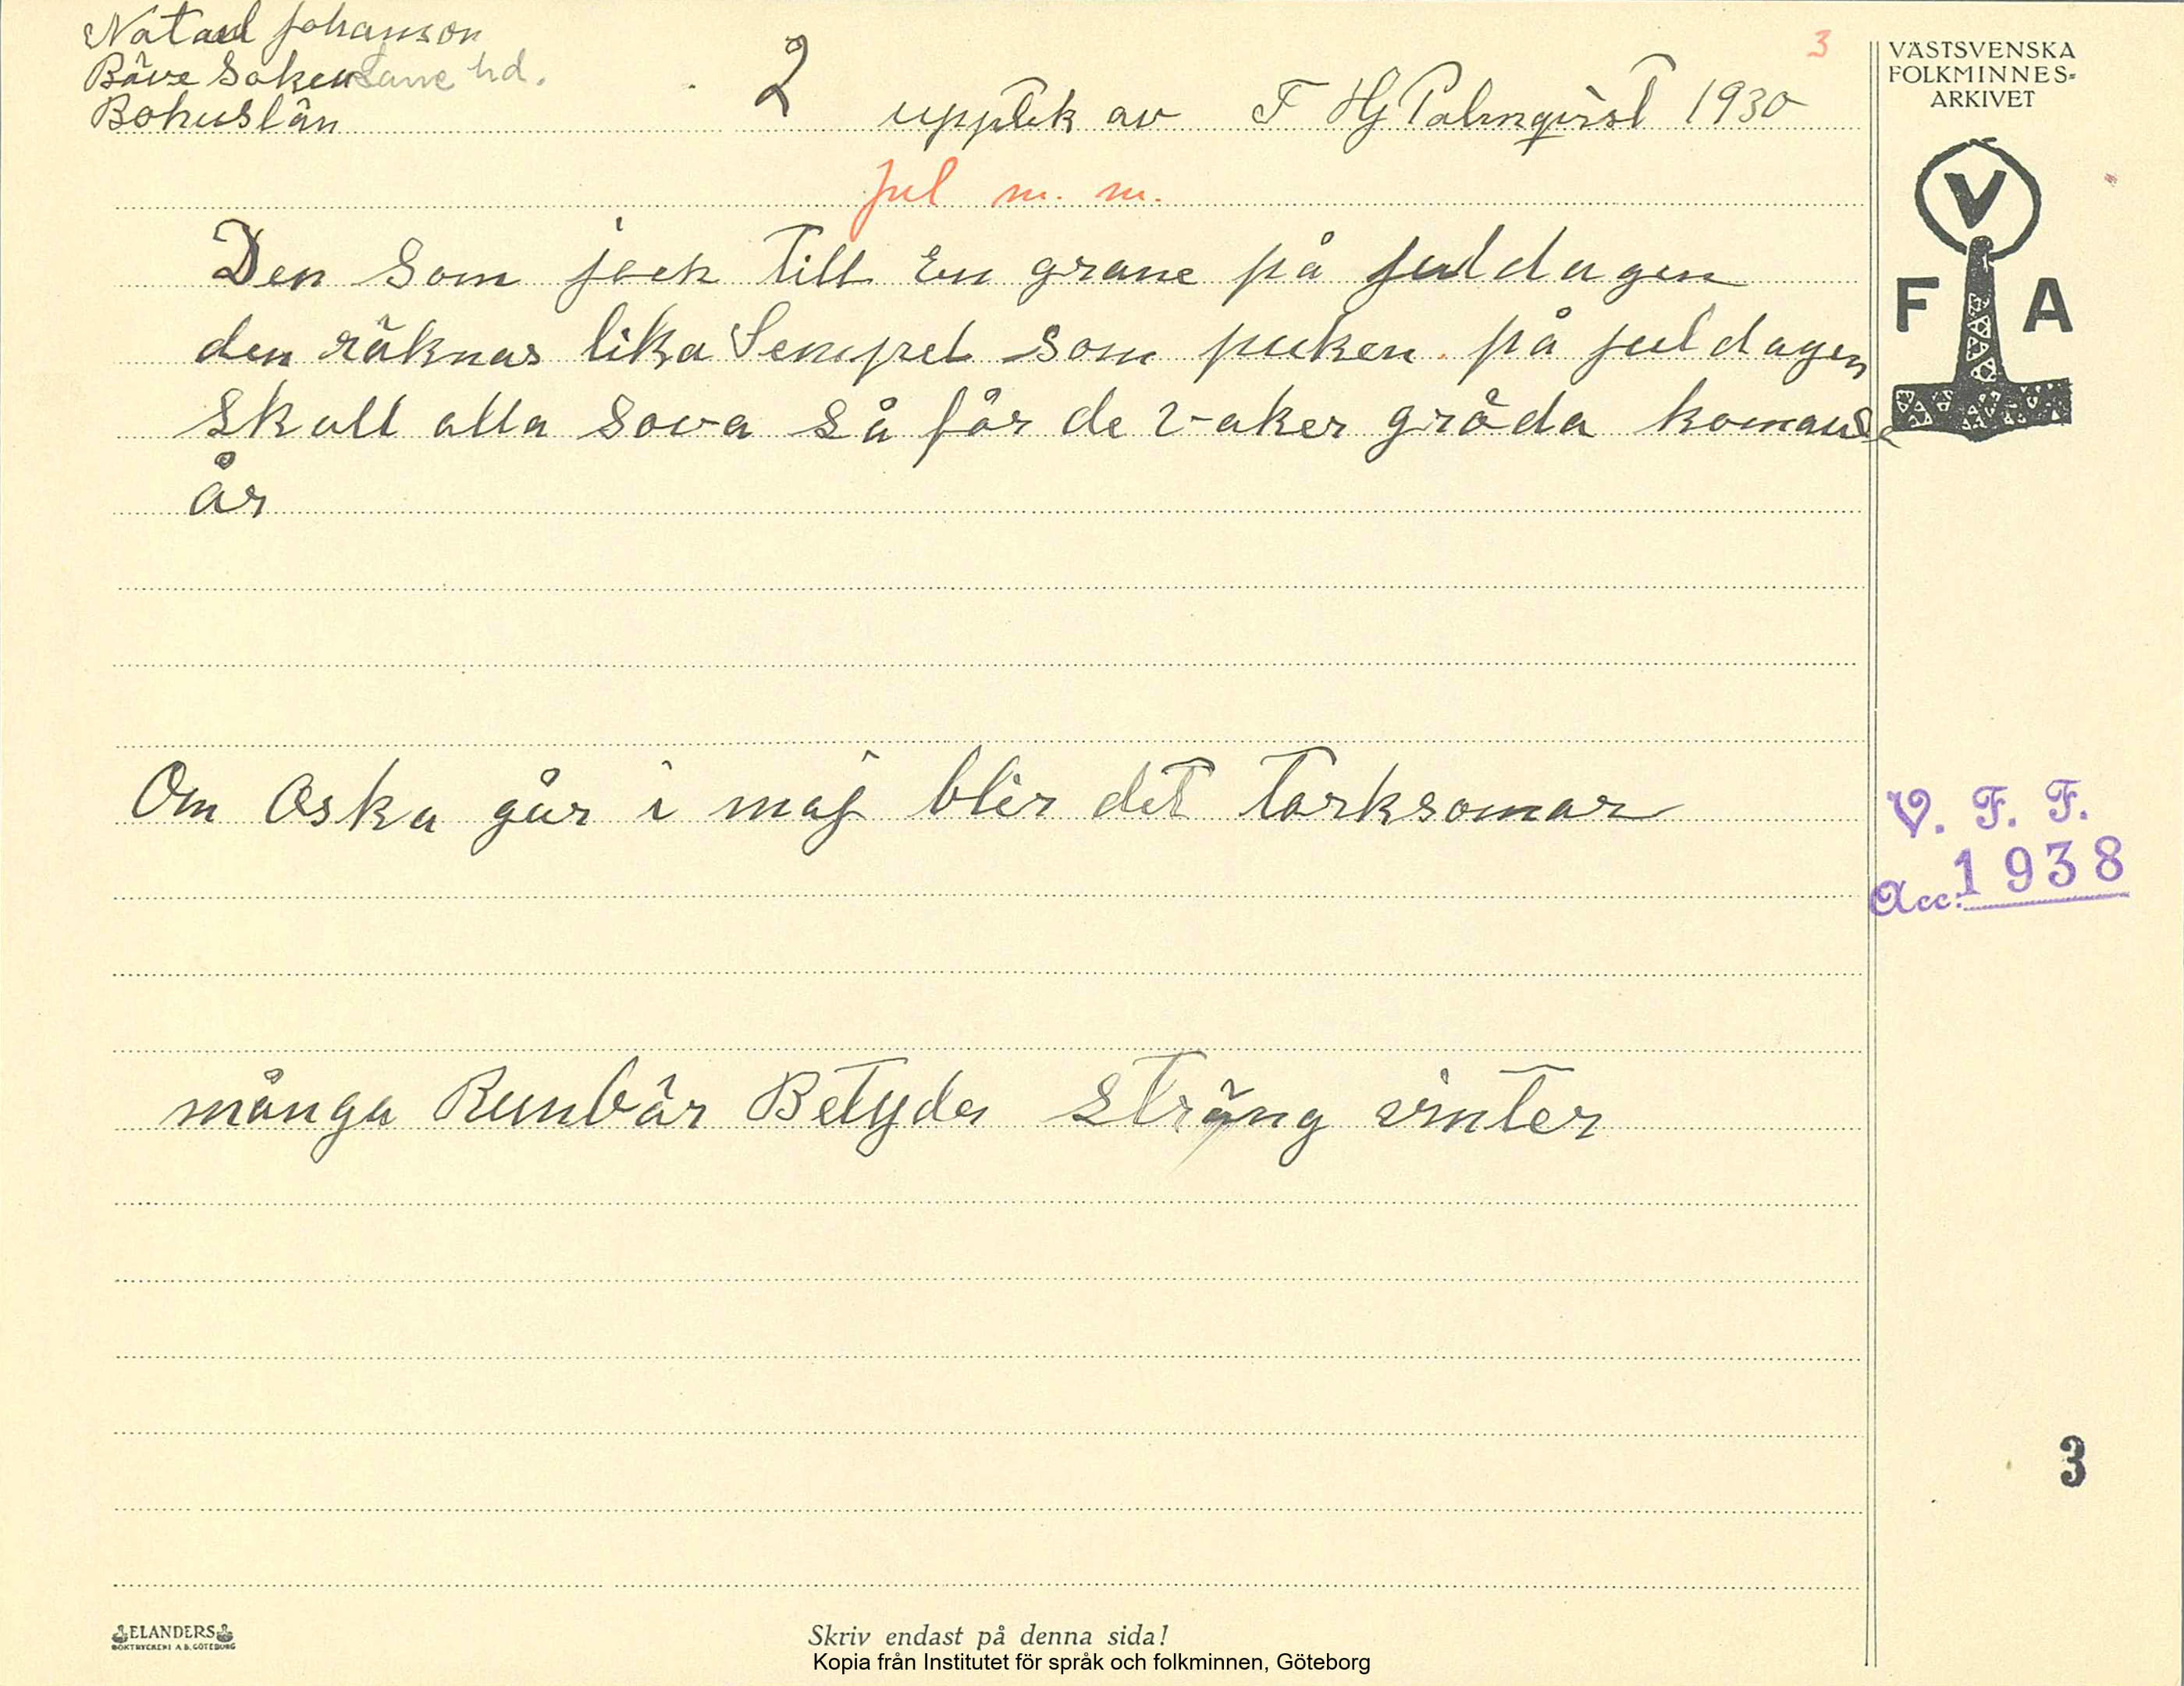 Natael Johanson
Bäve Soken Lane hd.
Bohuslän
2 upptek av F Hj Palmqvist 1930
3
jul m. m.
Den Som jeck till En grane på juldagen
den räknas lika Sempel som puken. på juldagen
Skall alla Sova Så får de vaker gröda komande
år
Om Oska går i maj blir det torksomar
många Runbär Betyder Sträng vinter
VÄSTSVENSKA
FOLKMINNES-
ARKIVET
V
F A
V. F. F.
Acc. 1938
3
ELANDERS
BOKTRYCKERI A.B. GÖTEBORG
Skriv endast på denna sida!
Kopia från Institutet för språk och folkminnen, Göteborg